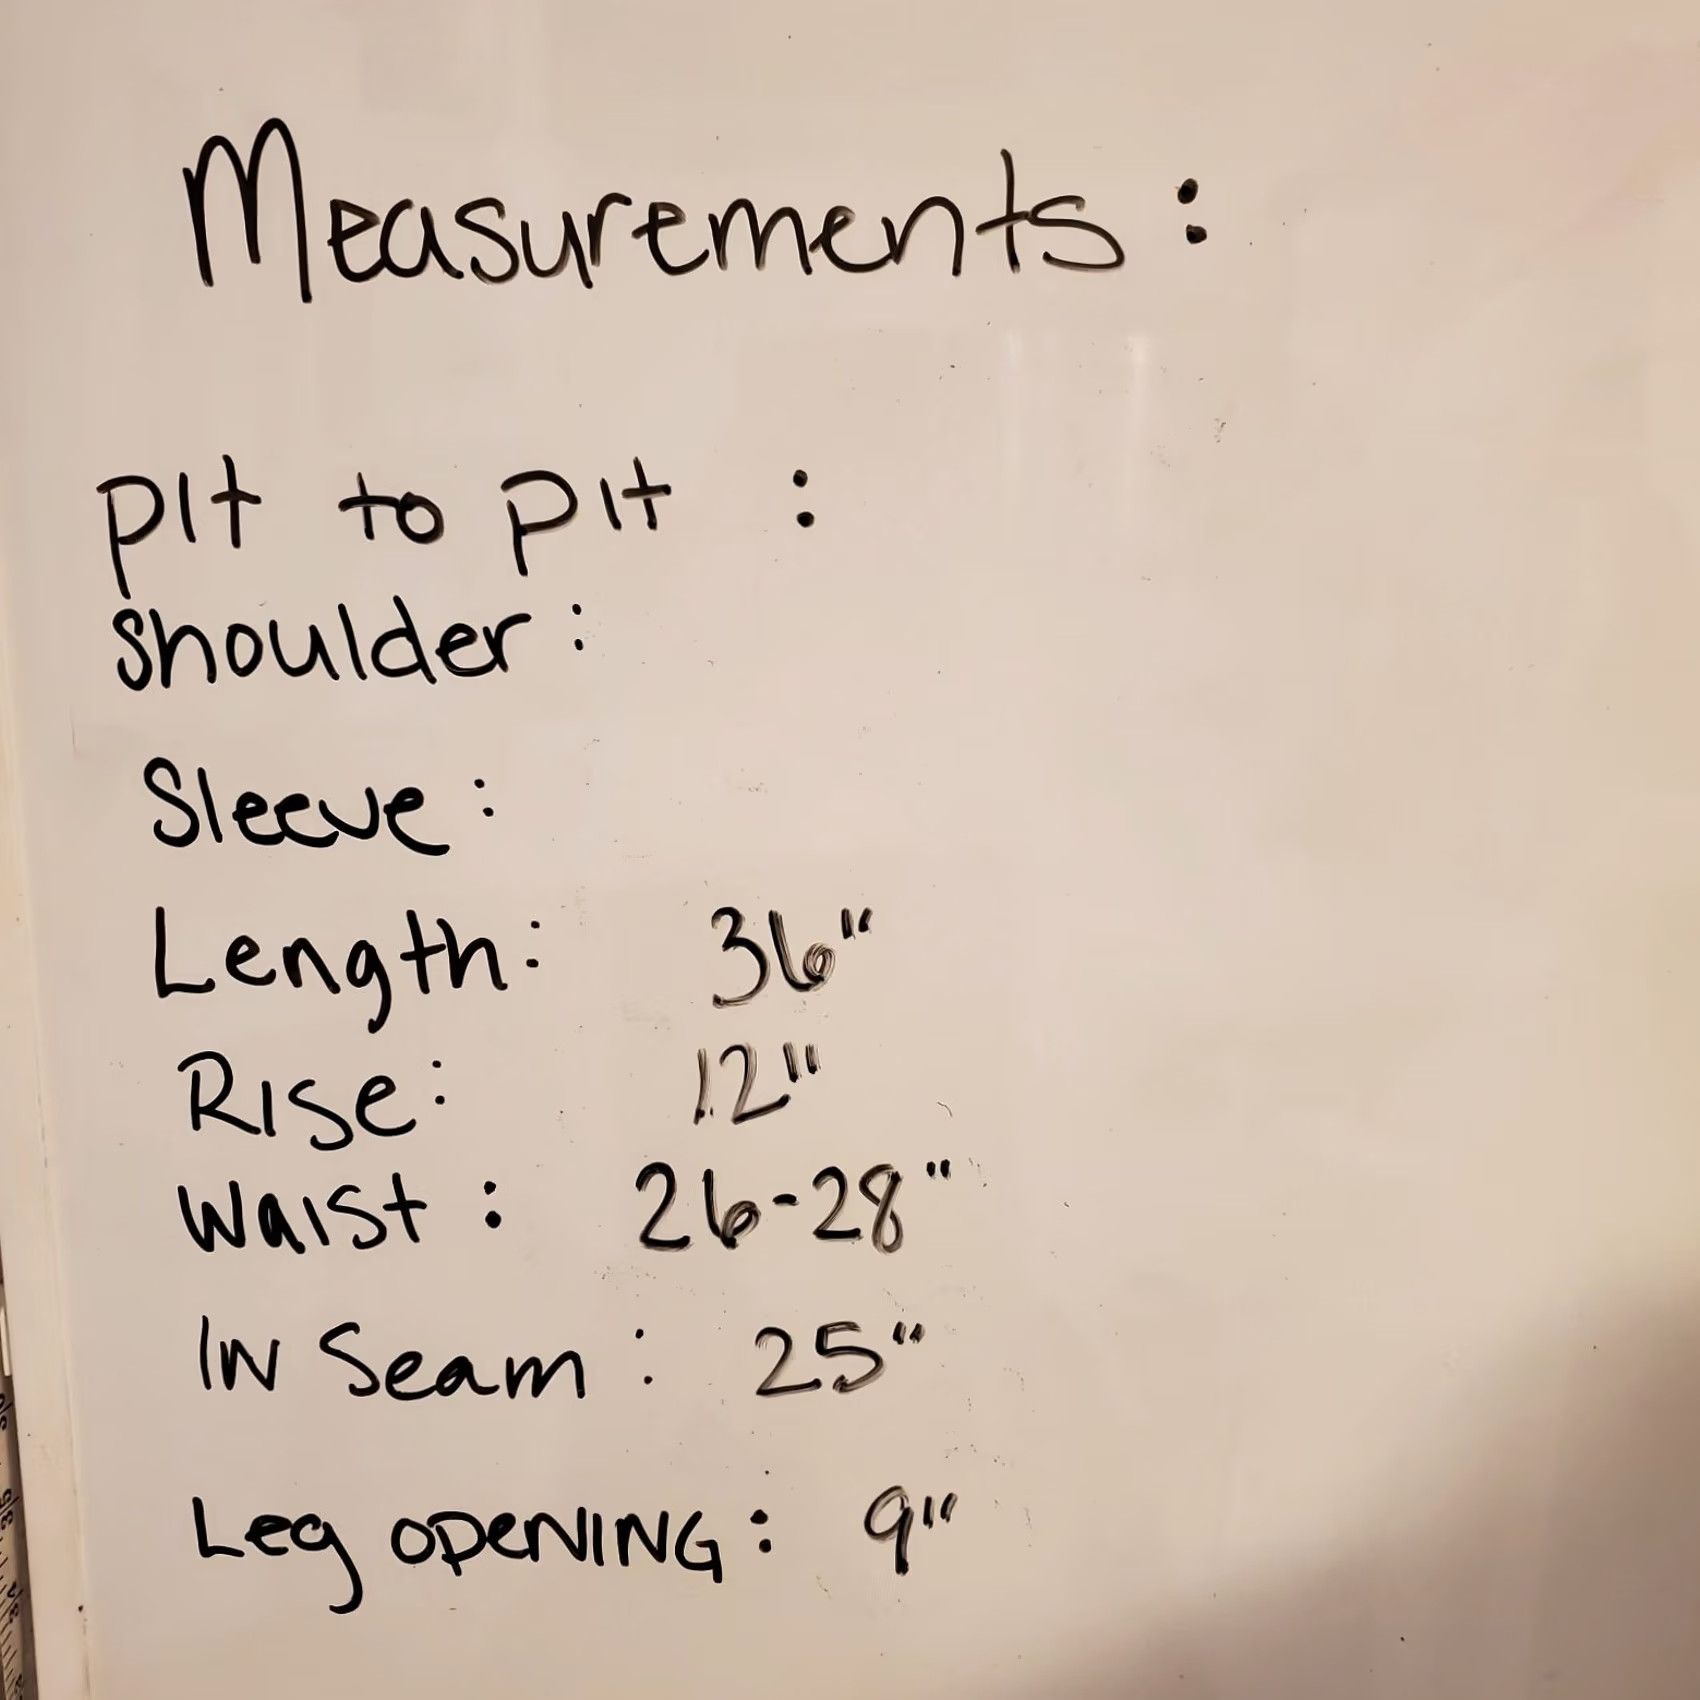 Measurements :
pit to pit :
shoulder :
Sleeve :
Length : 36"
Rise : 12"
Waist : 26-28"
IN Seam : 25"
Leg OPENING : 9"